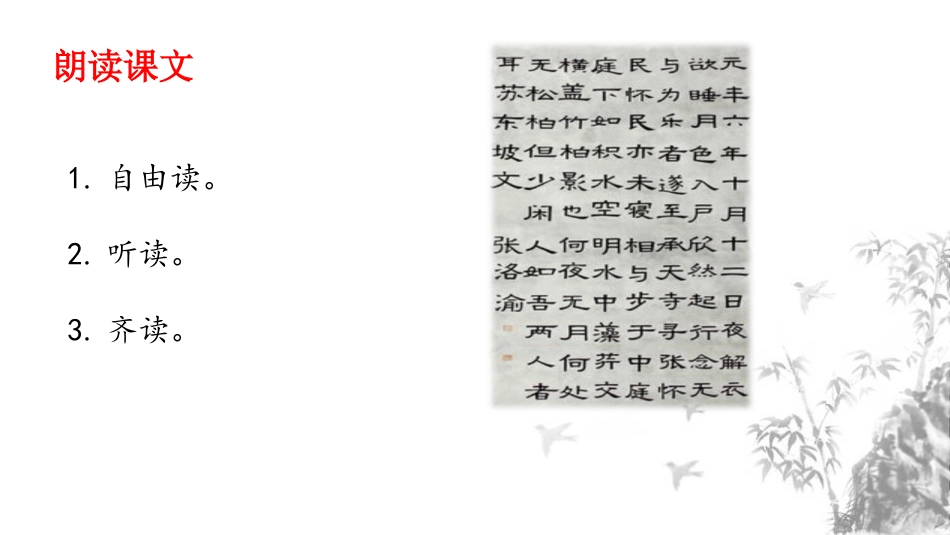 朗读课文
1. 自由读。
2. 听读。
3. 齐读。
元丰六年十月十二日夜解衣
欲睡月色入户欣然起行念无
与为乐者遂至承天寺寻张怀
民怀民亦未寝相与步于中庭
庭下如积水空明水中藻荇交
横盖竹柏影也何夜无月何处
无松柏但少闲人如吾两人者
耳苏东坡文 张洛渝